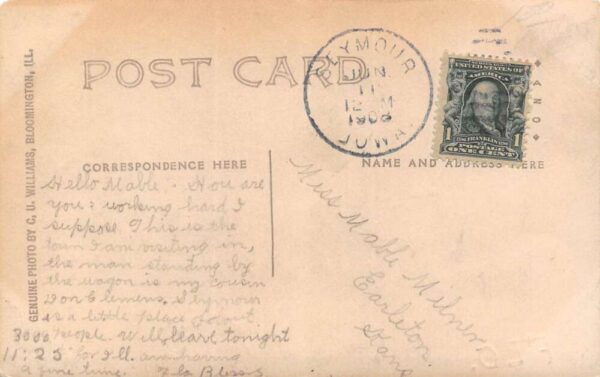 POST CARD
SEYMOUR
JUN
11
12 M
1908
IOWA
UNITED STATES OF
AMERICA
1
FRANKLIN
1
POSTAGE
ONE CENT
GENUINE PHOTO BY C. U. WILLIAMS, BLOOMINGTON, ILL.
CORRESPONDENCE HERE
NAME AND ADDRESS HERE
Hello Mable. How are
you? working hard I
suppose. This is the
town I am visiting in,
the man standing by
the wagon is my cousin
Don Clemens. Seymour
is a little place of about
3000 people. Will leave tonight
11:25 for Ill. am having
a fine time.
Miss Mable Milner
Earleton
Kans